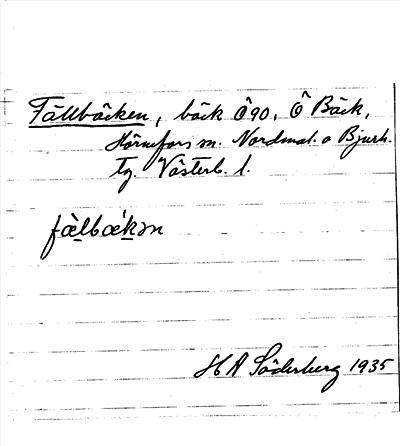 Fällbäcken, bäck Ö90, Ö Bäck,
Hörnefors m. Nordmal. o Bjurh.
tg. Västerb. l.
fälbækən
H A Söderberg 1935